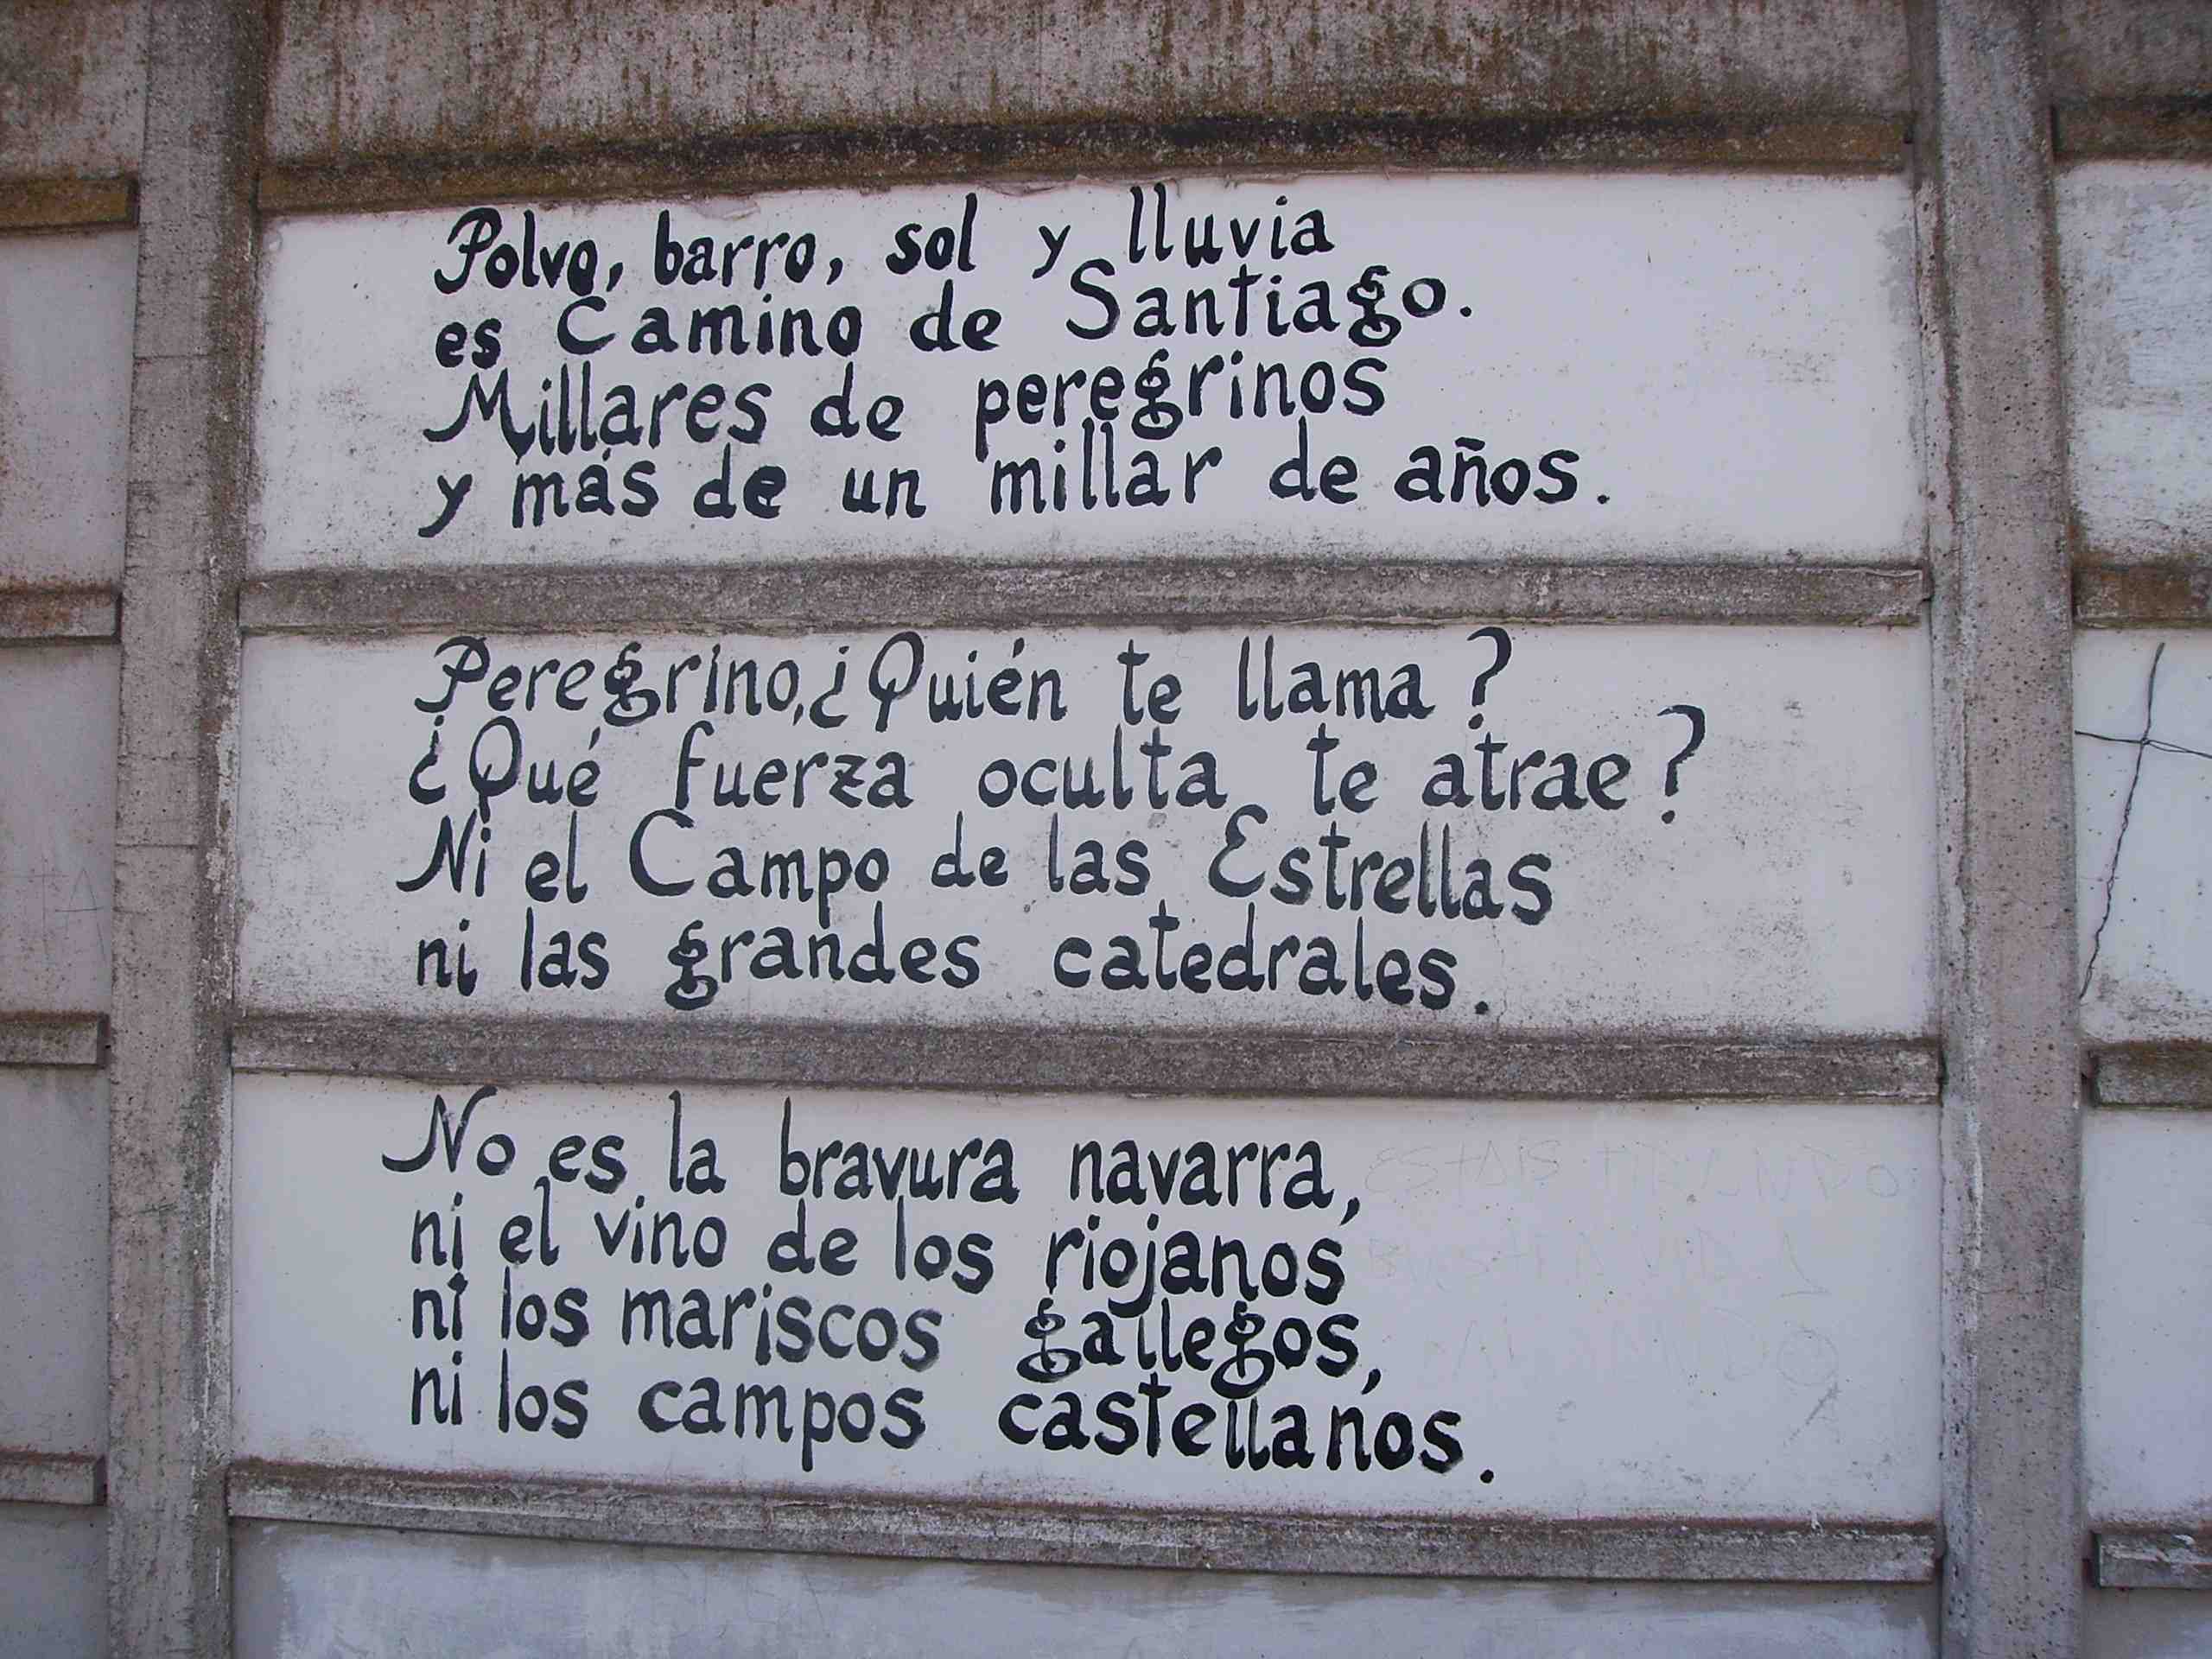 Polvo, barro, sol y lluvia
es Camino de Santiago.
Millares de peregrinos
y más de un millar de años.
Peregrino,¿Quién te llama?
¿Qué fuerza oculta te atrae?
Ni el Campo de las Estrellas
ni las grandes catedrales.
No es la bravura navarra,
ni el vino de los riojanos
ni los mariscos gallegos,
ni los campos castellanos.